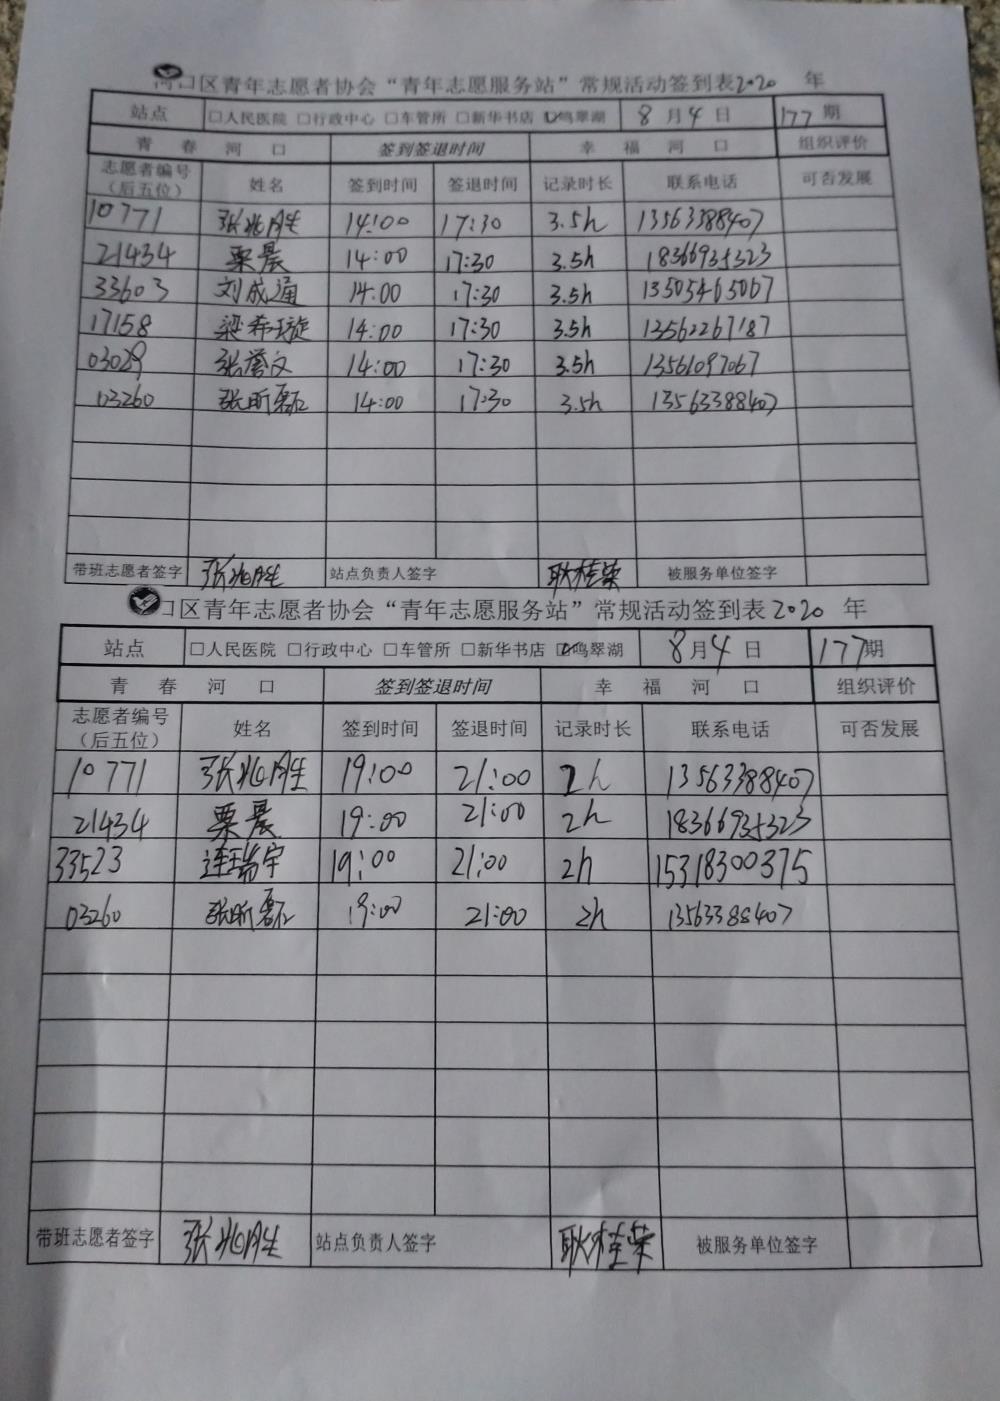 河口区青年志愿者协会“青年志愿服务站”常规活动签到表2020 年
站点 □人民医院 □行政中心 □车管所 □新华书店 ☑鸣翠湖 8月4日 177期
青春河口 签到签退时间 幸福河口 组织评价
志愿者编号（后五位） 姓名 签到时间 签退时间 记录时长 联系电话 可否发展
10771 张兆胜 14:00 17:30 3.5h 13563388407
21434 栗晨 14:00 17:30 3.5h 18366935323
33603 刘成通 14:00 17:30 3.5h 13505465067
17158 梁希璇 14:00 17:30 3.5h 13562267187
03029 张誉文 14:00 17:30 3.5h 13561097067
03260 张昕磊 14:00 17:30 3.5h 13563388407
带班志愿者签字 张兆胜 站点负责人签字 耿桂荣 被服务单位签字
口区青年志愿者协会“青年志愿服务站”常规活动签到表2020 年
站点 □人民医院 □行政中心 □车管所 □新华书店 ☑鸣翠湖 8月4日 177期
青春河口 签到签退时间 幸福河口 组织评价
志愿者编号（后五位） 姓名 签到时间 签退时间 记录时长 联系电话 可否发展
10771 张兆胜 19:00 21:00 2h 13563388407
21434 栗晨 19:00 21:00 2h 18366935323
33523 连瑞宇 19:00 21:00 2h 15318300375
03260 张昕磊 19:00 21:00 2h 13563388407
带班志愿者签字 张兆胜 站点负责人签字 耿桂荣 被服务单位签字